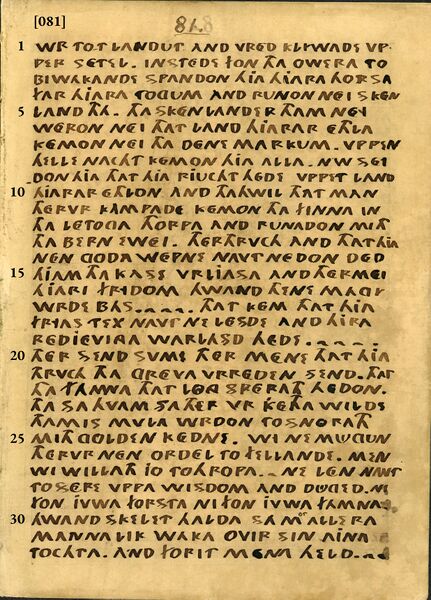 [081]
1 WR TOT LANDUT AND VRED KLIWADE VP-
PER SETEL. INSTEDE FON THA OWERA TO
BIWAKANDE SPANDON HIA HIARA HORSA
FAR HIARA TOGUM AND RUNON NEI SKEN
5 LAND THA. THA SKENLANDER THAM NEI
WERON NEI THAT LAND HIARAR ETHLA
KEMON NEI THA DENEMARKUM. VPPEN
HELLE NACHT KEMON HIA ALLA. NW SEI
DON HIA THAT HIA RIUCHT HEDE VPPET LAND
10 HIARAR ETHLON AND THAHWIL THAT MAN
THERVR KAMPADE KEMON THA FINNA IN
THA LETOGA THORPA AND RUNADON MITH
THA BERN EWEI. THERTHRVCH AND THAT HIA
NEN GODA WEPNE NAVT NEDON DED
15 HIAM THA KASE VRLIASA AND THERMEI
HIARI FRIDOM HWAND THENE MAGI
WRDE BAS. THAT KEM THAT HIA
FRIAS TEX NAVT NE LESDE AND HIRA
REDIEVINGA WARLASD HEDE.
20 THER SEND SVME THER MENE THAT HIA
THRVCH THA GREVA VRREDEN SEND. THAT
THA FAMNA THAT LONG SPERATH HEDON.
THA SA HVAM SA THER VR KETHA WILDE
THAM IS MVLA WRDON TO SNORATH
25 MITH GOLDEN KEDNE. WI NE MUGUN
THERVR NEN ORDEL TO FELLANDE. MEN
WI WILLATH IO TOHROPA. NE LEN NAVT
TO SERE VPPA WISDOM AND DUGED. NI
FON IVWA FORSTA NI FON IVWA FAMNA,
30 HWAND SKEL ET HALDA SA MOT ALLERA
MANNALIK WAKA OVIR SIN AINA
TOCHTA. AND FORIT MENA HELD.